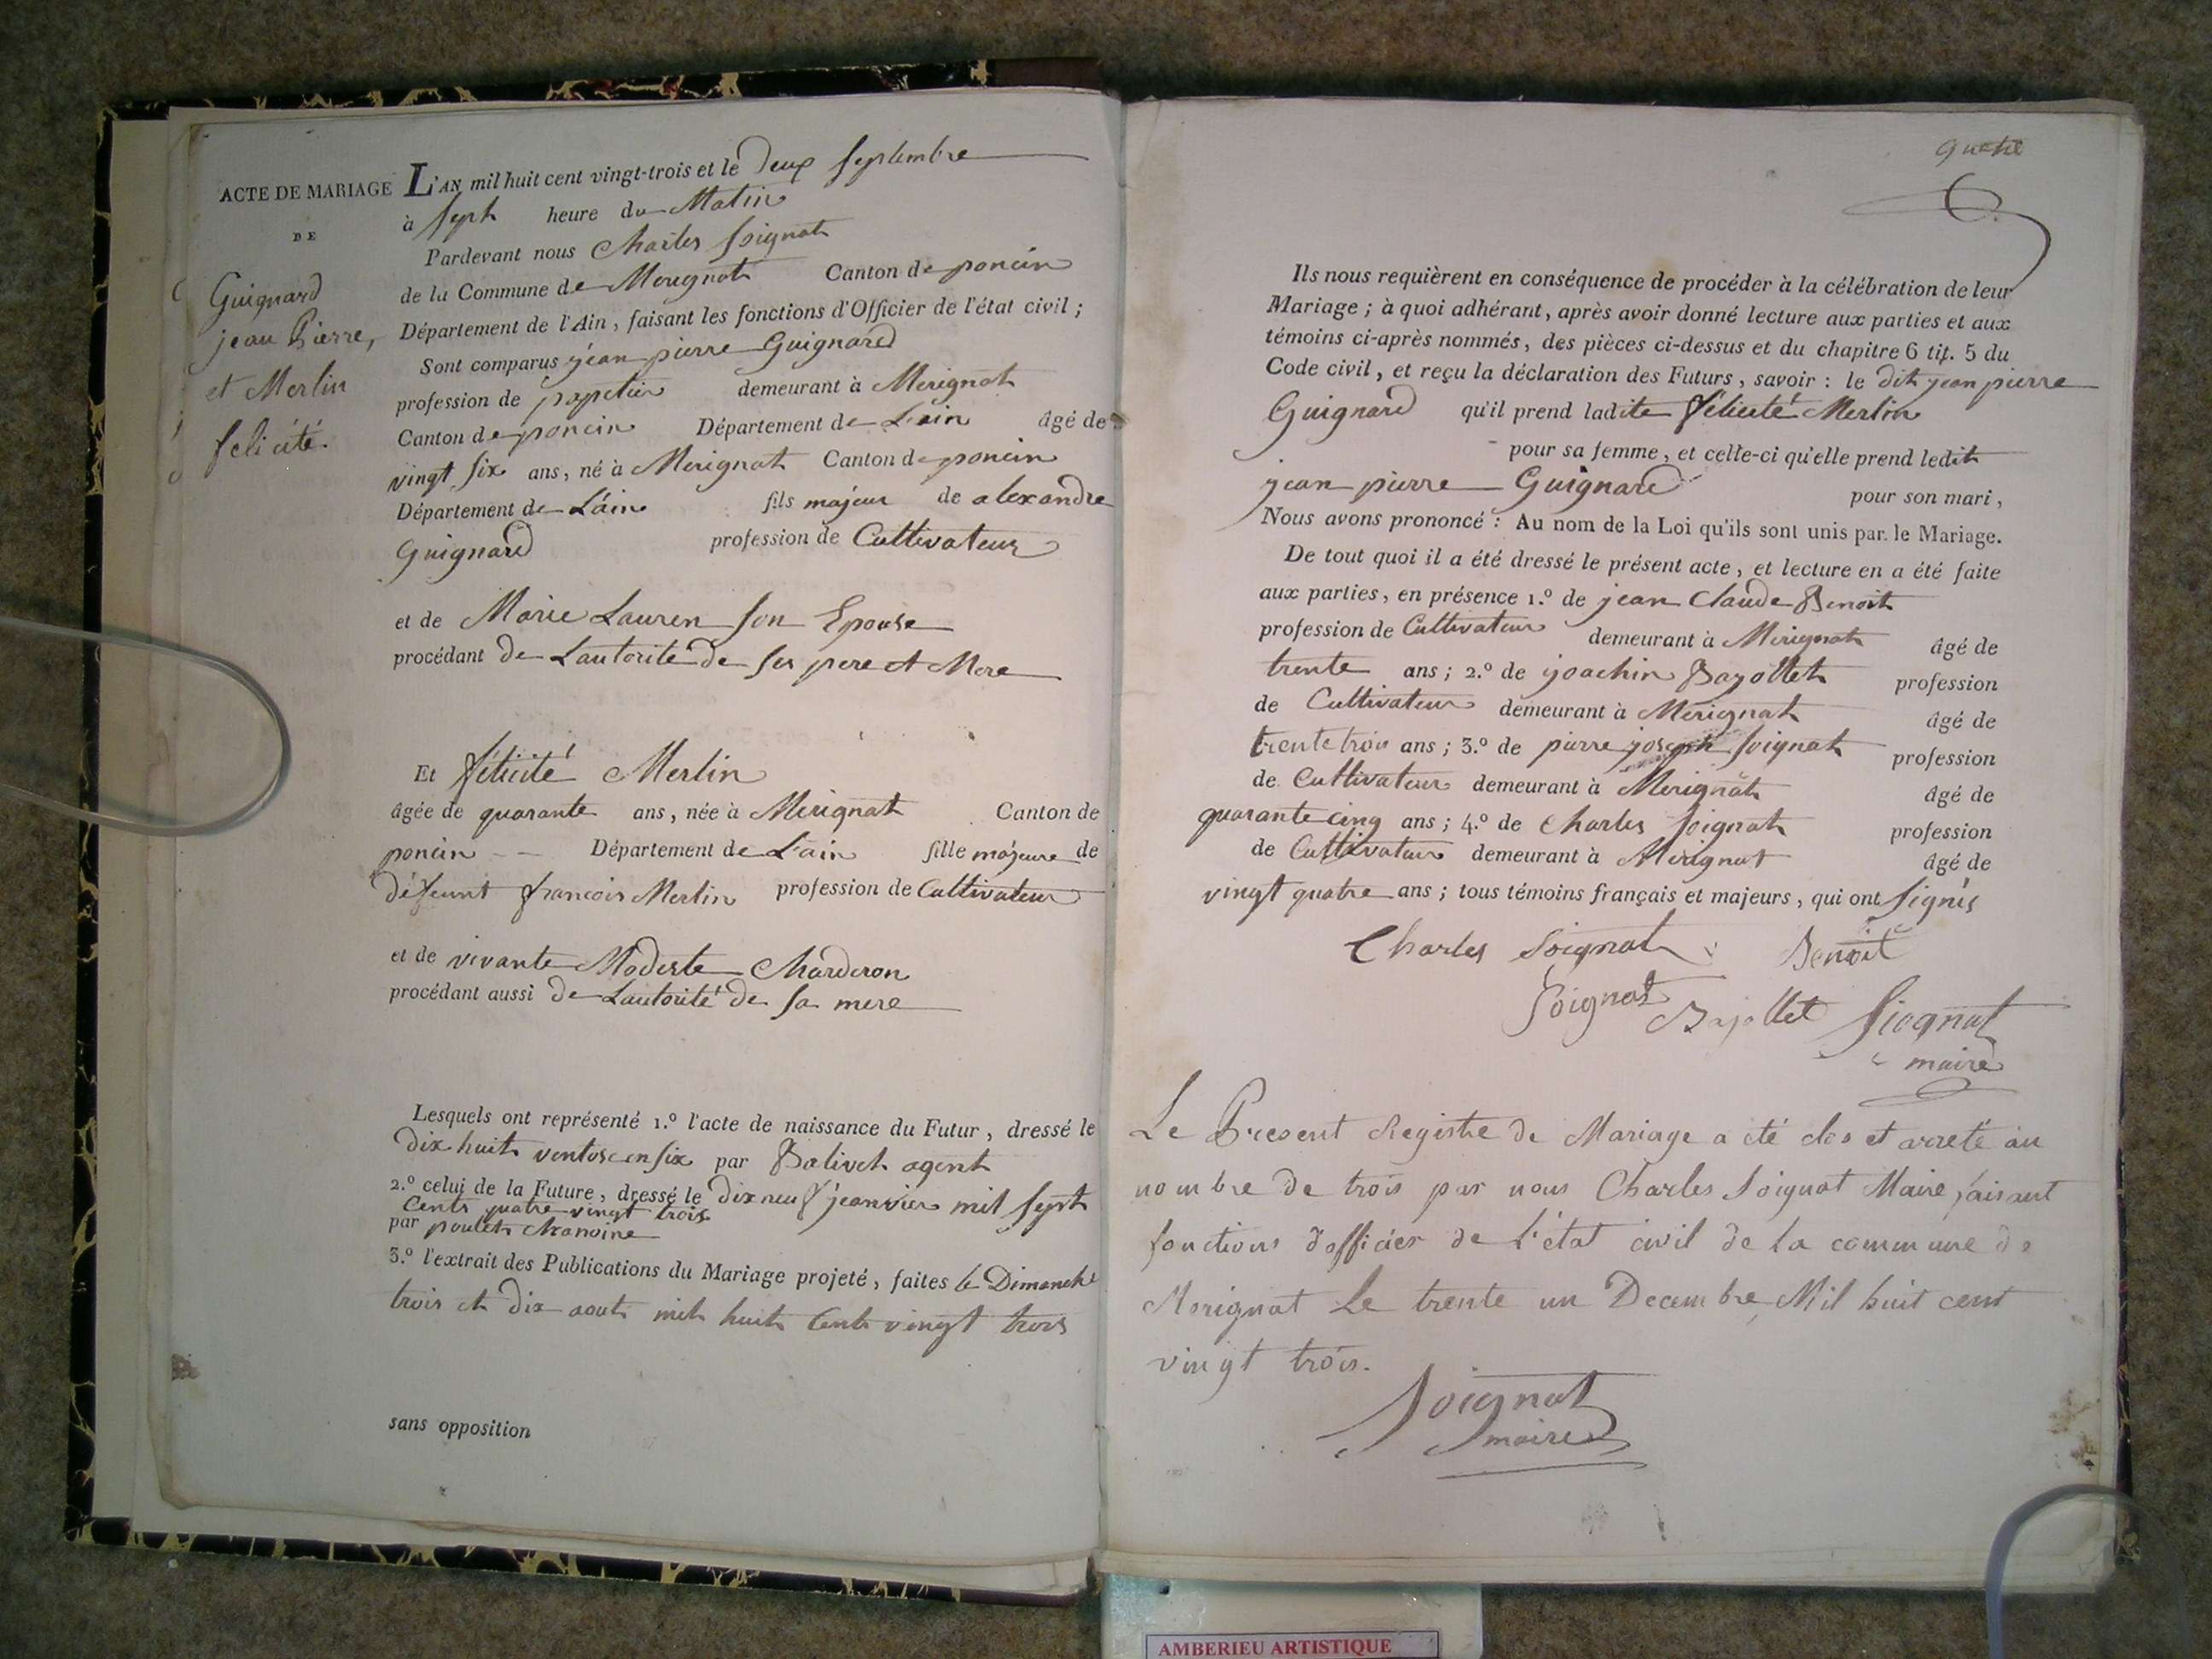 ACTE DE MARIAGE
DE
Guignard
jean Pierre,
et Merlin
felicité.
L'AN mil huit cent vingt-trois et le Deux Septembre
à Sept heure du Matin
Pardevant nous Charles Soignat
de la Commune de Merignat Canton de poncin
Département de l'Ain, faisant les fonctions d'Officier de l'état civil ;
Sont comparus jéan pierre Guignard
profession de papetier demeurant à Merignat
Canton de poncin Département de L'ain âgé de
vingt six ans, né à Merignat Canton de poncin
Département de L'áin fils majeur de alexandre
Guignard profession de Cultivateur
et de Marie Lauren Son Epouse
procédant de Lautorité de ses pere et Mere
Et félicité Merlin
âgée de quarante ans, née à Merignat Canton de
poncin Département de L'ain fille majeure de
défeunt francois Merlin profession de Cultivateur
et de vivante Modeste Charderon
procédant aussi de Lautorité de sa mere
Lesquels ont représenté 1.º l'acte de naissance du Futur, dressé le
dix huit ventose en six par Balivet agent
2.º celui de la Future, dressé le dix neuf jeanvier mil sept
Cents quatre vingt trois
par poulet chanoine
3.º l'extrait des Publications du Mariage projeté, faites le Dimanche
trois et dix aout mil huit Cent vingt trois
sans opposition
quatre
Ils nous requièrent en conséquence de procéder à la célébration de leur
Mariage ; à quoi adhérant, après avoir donné lecture aux parties et aux
témoins ci-après nommés, des pièces ci-dessus et du chapitre 6 tit. 5 du
Code civil, et reçu la déclaration des Futurs, savoir : le dit jean pierre
Guignard qu'il prend ladite félicité Merlin
pour sa femme, et celle-ci qu'elle prend ledit
jean pierre Guignard pour son mari,
Nous avons prononcé : Au nom de la Loi qu'ils sont unis par le Mariage.
De tout quoi il a été dressé le présent acte, et lecture en a été faite
aux parties, en présence 1.º de jean Claude Benoit
profession de Cultivateur demeurant à Merignat âgé de
trente ans ; 2.º de joachin Bazollet profession
de Cultivateur demeurant à Merignat âgé de
trente trois ans ; 3.º de pierre joseph Soignat profession
de Cultivateur demeurant à Merignat âgé de
quarante cinq ans ; 4.º de Charles Soignat profession
de Cultivateur demeurant à Merignat âgé de
vingt quatre ans ; tous témoins français et majeurs, qui ont Signés
Charles Soignat Benoit
Soignat Bazollet Soignat
maire
Le Present Registre de Mariage a été clos et arreté au
nombre de trois par nous Charles Soignat Maire faisant
fonctions d'officier de L'état civil de la commune de
Merignat Le trente un Decembre Mil huit cent
vingt trois.
Soignat
maire
AMBERIEU ARTISTIQUE